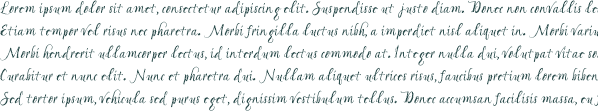 Lorem ipsum dolor sit amet, consectetur adipiscing elit. Suspendisse ut justo diam. Donec non convallis le
Etiam tempor vel risus nec pharetra. Morbi fringilla luctus nibh, a imperdiet nisl aliquet in. Morbi variu
Morbi hendrerit ullamcorper lectus, id interdum lectus commodo at. Integer nulla dui, volutpat vitae se
Curabitur et nunc elit. Nunc et pharetra dui. Nullam aliquet ultrices risus, faucibus pretium lorem biben
Sed tortor ipsum, vehicula sed purus eget, dignissim vestibulum tellus. Donec accumsan facilisis massa, eu